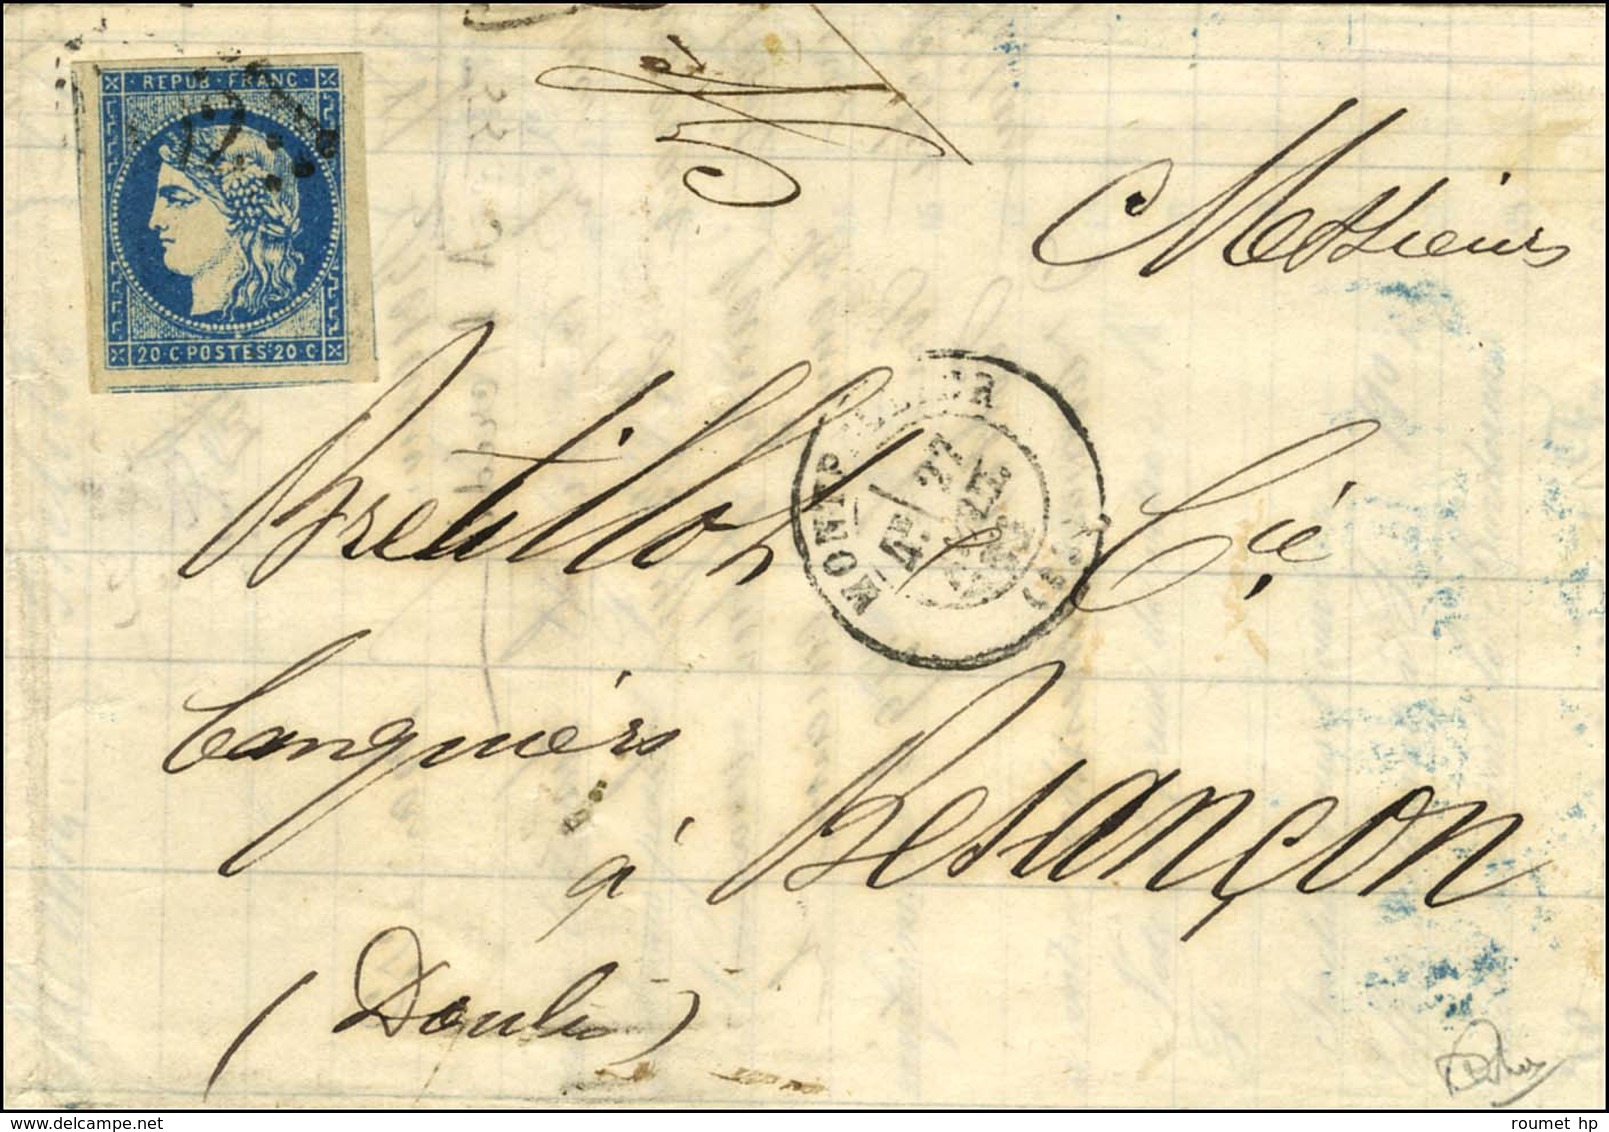 REPUB · FRANC ·
20 · C POSTES 20 · C
Messieurs
Bretillot & Cie
MONTPELLIER
4E / 27
banquiers
à Besançon
(Doubs)
roumet hp